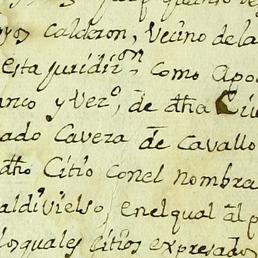 yos Calderon, Vecino de la
esta juridiz.on, como Apo
anco y vez.o, de dha Ciu
ado Caveza de Cavallo
dho Citio con el nombra
aldivielso, en el qual al p
los quales citios expresados